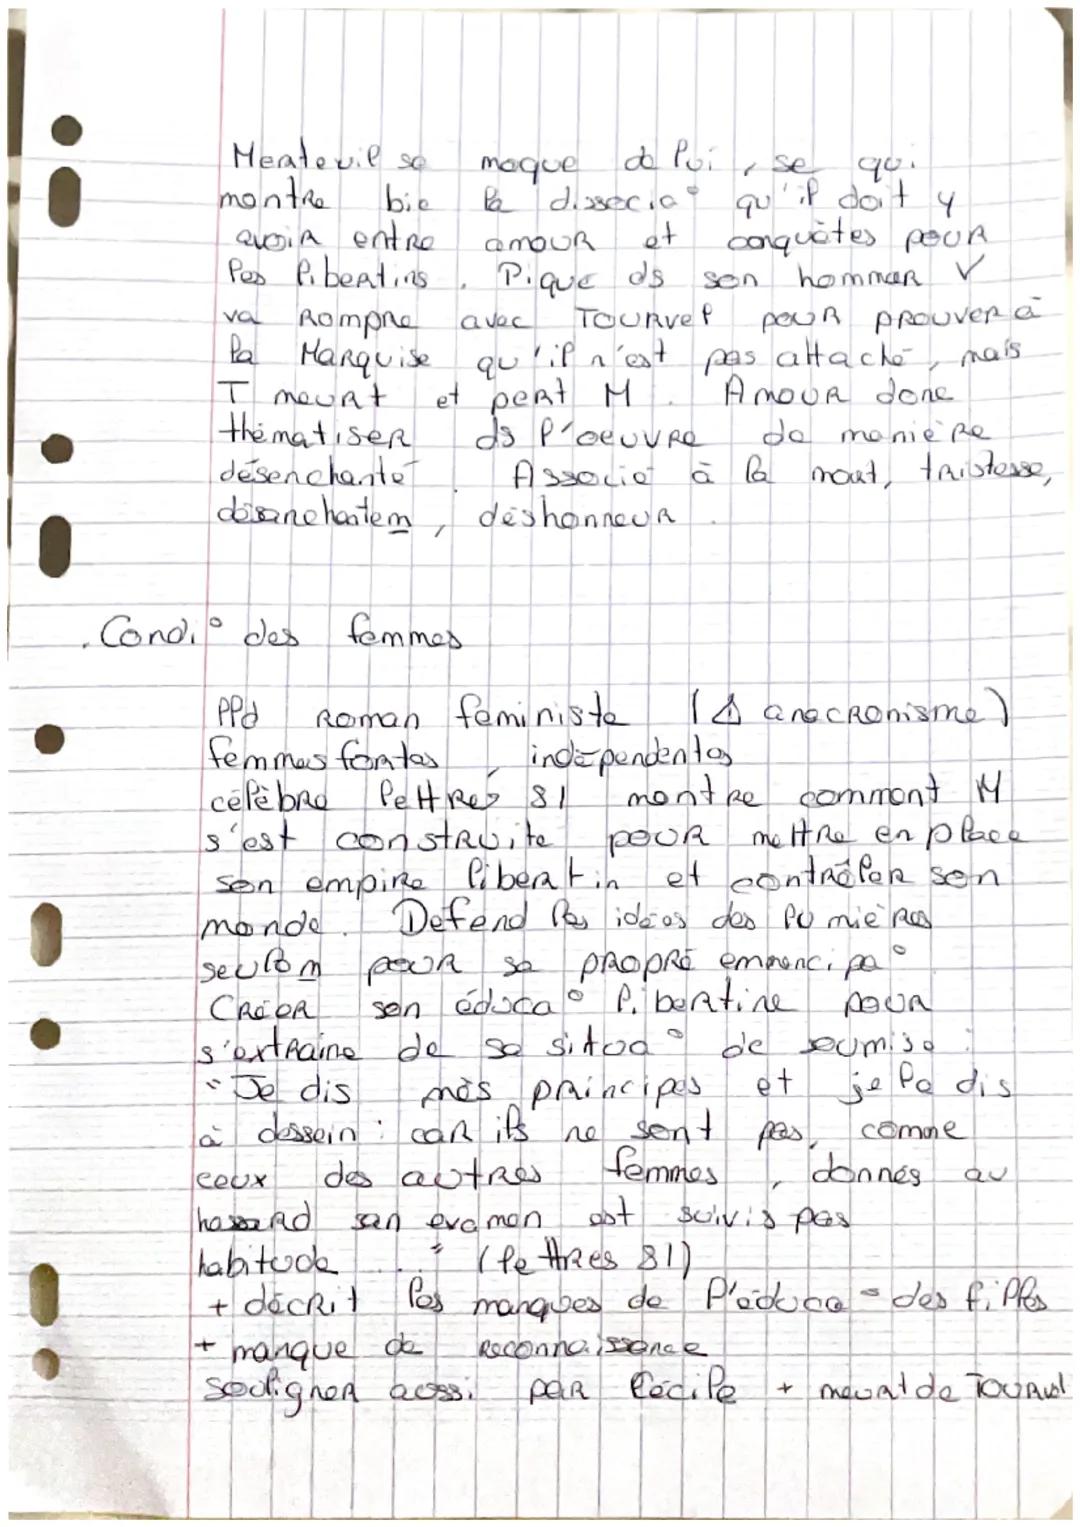 Merteuil se moque de lui, se qui
montre bie la dissocia° qu'il doit y
avoir entre amour et conquêtes pour
les libertins. Piqué ds son honneur V
va rompre avec TOURVEL pour prouver à
la Marquise qu'il n'est pas attaché, mais
T meurt et pert M. Amour donc
thématiser ds l'oeuvre de manière
désenchanté. Associé à la mort, tristesse,
désenchantem, déshonneur.
. Condi° des femmes
PPd roman féministe (⚠ anacronisme)
femmes fortes, indépendentes
célèbre lettres 81 montre comment M
s'est construite pour mettre en place
son empire libertin et contrôler son
monde. Défend les idées des lumières
seulem pour sa propre emmencipa°
Créer son éduca° libertine pour
s'extraire de sa situa° de soumise :
"Je dis mes principes et je le dis
à dessein : car ils ne sont pas, comme
ceux des autres femmes, donnés au
hasard san examen est suivis pas
habitude ... " (lettres 81)
+ décrit les manques de l'éduca° des filles
+ manque de reconnaissance
souligner aussi par Cécile + meurt de Tourvel